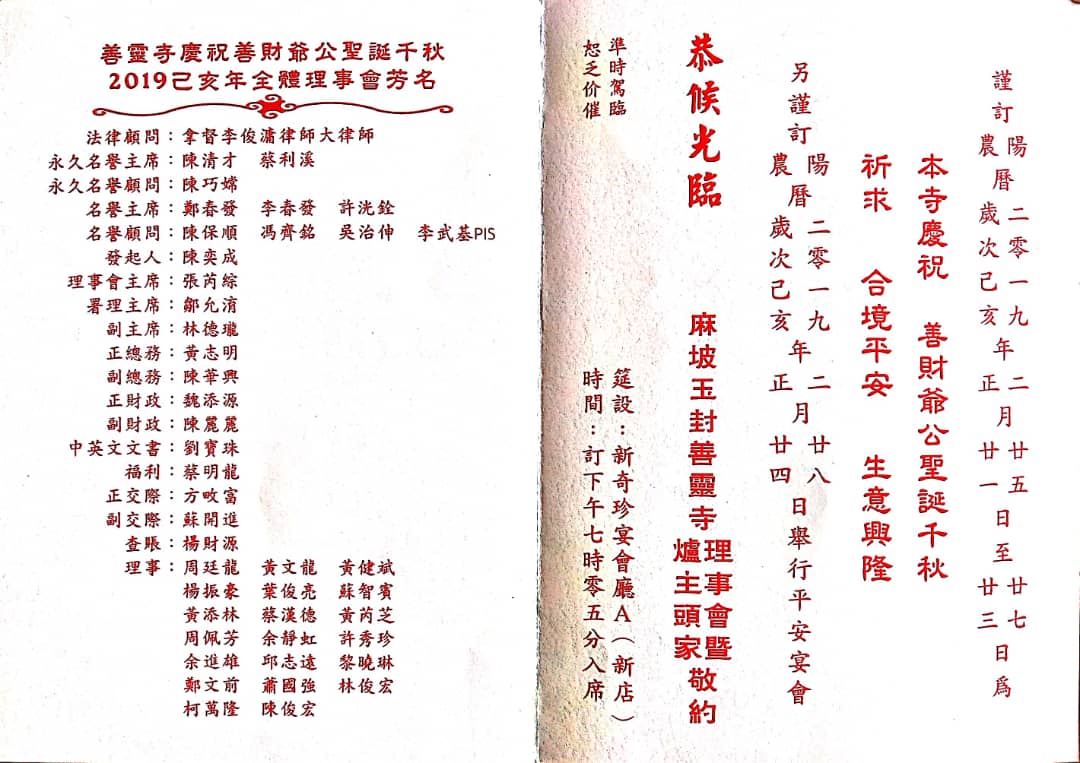 謹訂
陽曆二零一九年二月廿五日至廿七日爲
農曆歲次己亥年正月廿一日至廿三日爲
本寺慶祝 善財爺公聖誕千秋
祈求 合境平安 生意興隆
另謹訂
陽曆二零一九年二月廿八日舉行平安宴會
農曆歲次己亥年正月廿四日舉行平安宴會
恭候光臨
麻坡玉封善靈寺理事會暨爐主頭家敬約
準時駕臨
恕乏价催
筵設：新奇珍宴會廳A（新店）
時間：訂下午七時零五分入席
善靈寺慶祝善財爺公聖誕千秋
2019己亥年全體理事會芳名
法律顧問：拿督李俊瀟律師大律師
永久名譽主席：陳清才 蔡利溪
永久名譽顧問：陳巧嫦
名譽主席：鄭春發 李春發 許洸銓
名譽顧問：陳保順 馮齊銘 吳治伸 李武基PIS
發起人：陳奕成
理事會主席：張芮綜
署理主席：鄒允淯
副主席：林德瓏
正總務：黃志明
副總務：陳華興
正財政：魏添源
副財政：陳麗麗
中英文文書：劉寶珠
福利：蔡明龍
正交際：方畋富
副交際：蘇開進
查賬：楊財源
理事：周廷龍 黃文龍 黃健斌
楊振豪 葉俊亮 蘇智賓
黃添林 蔡漢德 黃芮芝
周佩芳 余靜虹 許秀珍
余進雄 邱志遠 黎曉琳
鄭文前 蕭國強 林俊宏
柯萬隆 陳俊宏